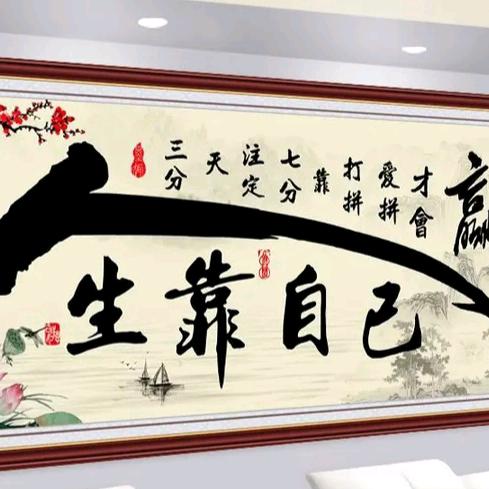 三分天注定七分靠打拼愛拼才會贏
人生靠自己